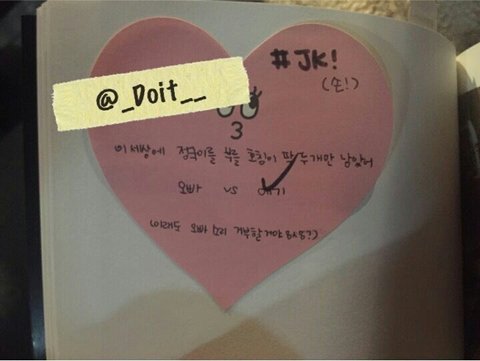 @_Doit__
#JK!
(손!)
이 세상에 정국이를 부를 호칭이 딱 두개만 남았어
오빠 vs 애기
오빠 소리 거부할거야